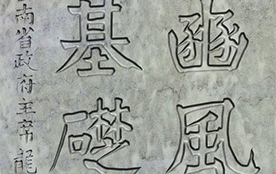 豳風
基礎
南省政府主席龍